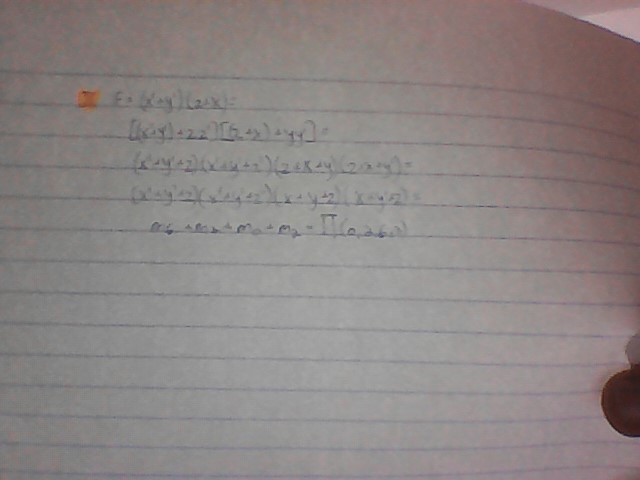 F = (x'+y')(z+x) =
[(x'+y')+zz'][(z+x)+yy'] =
(x'+y'+z)(x'+y'+z')(z+x+y)(z+x+y') =
(x'+y'+z)(x'+y'+z')(x+y+z)(x+y'+z) =
+ m0 + m2 = Π(0,2,6,7)